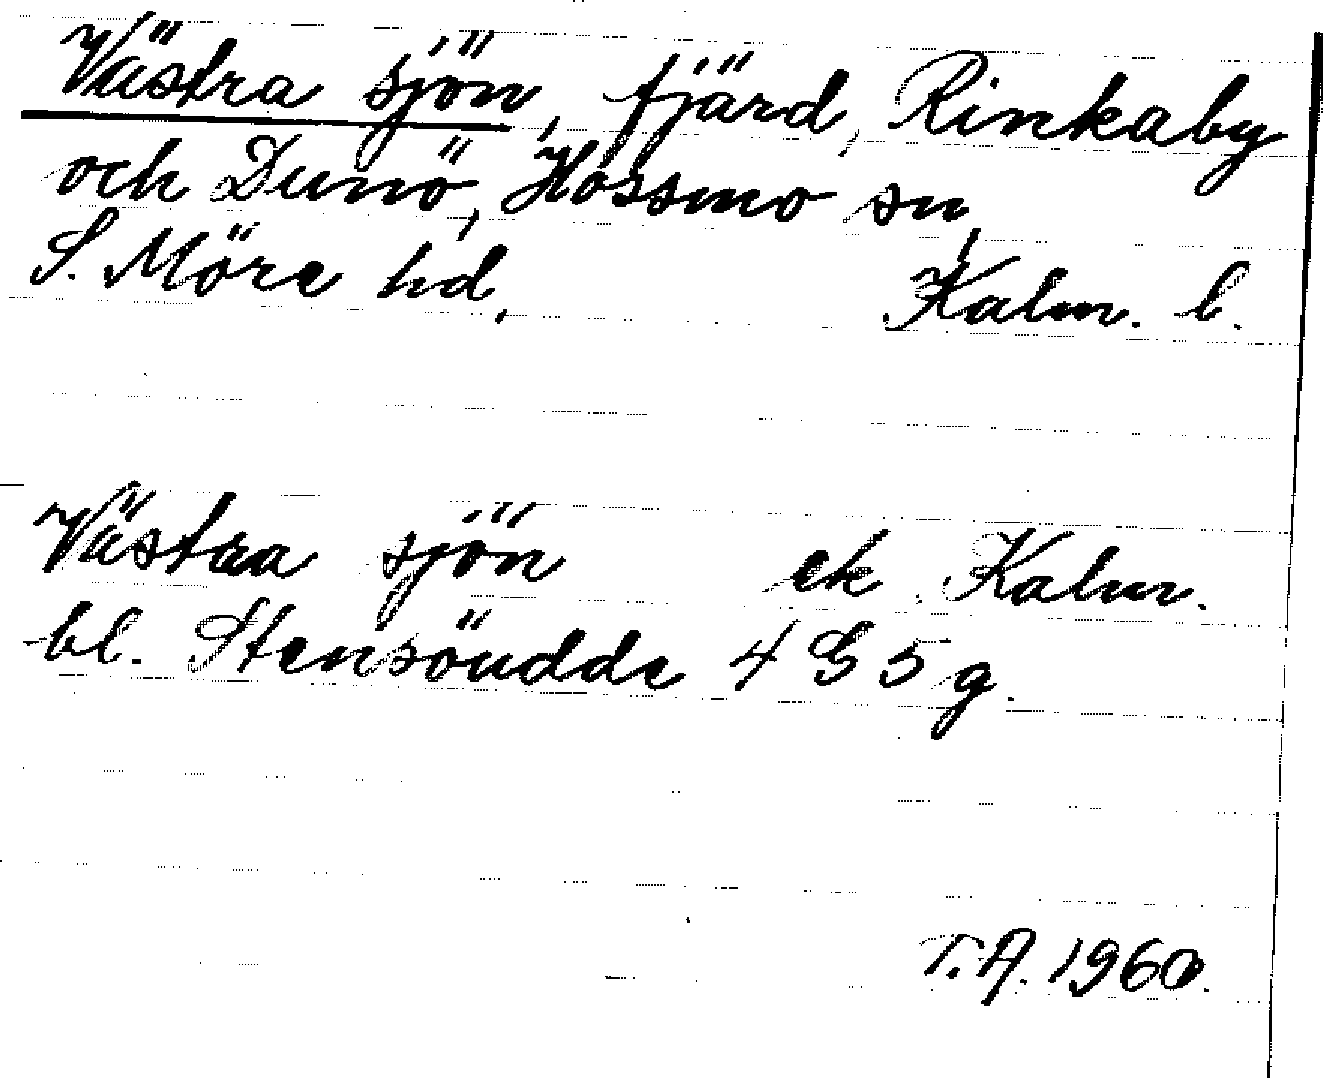 Västra sjön, fjärd, Rinkaby
och Dunö, Hossmo sn,
S. Möre hd, Kalm. l.
Västra sjön ek Kalm.
bl. Stensöudde 4 G 5 g.
T.A. 1960.